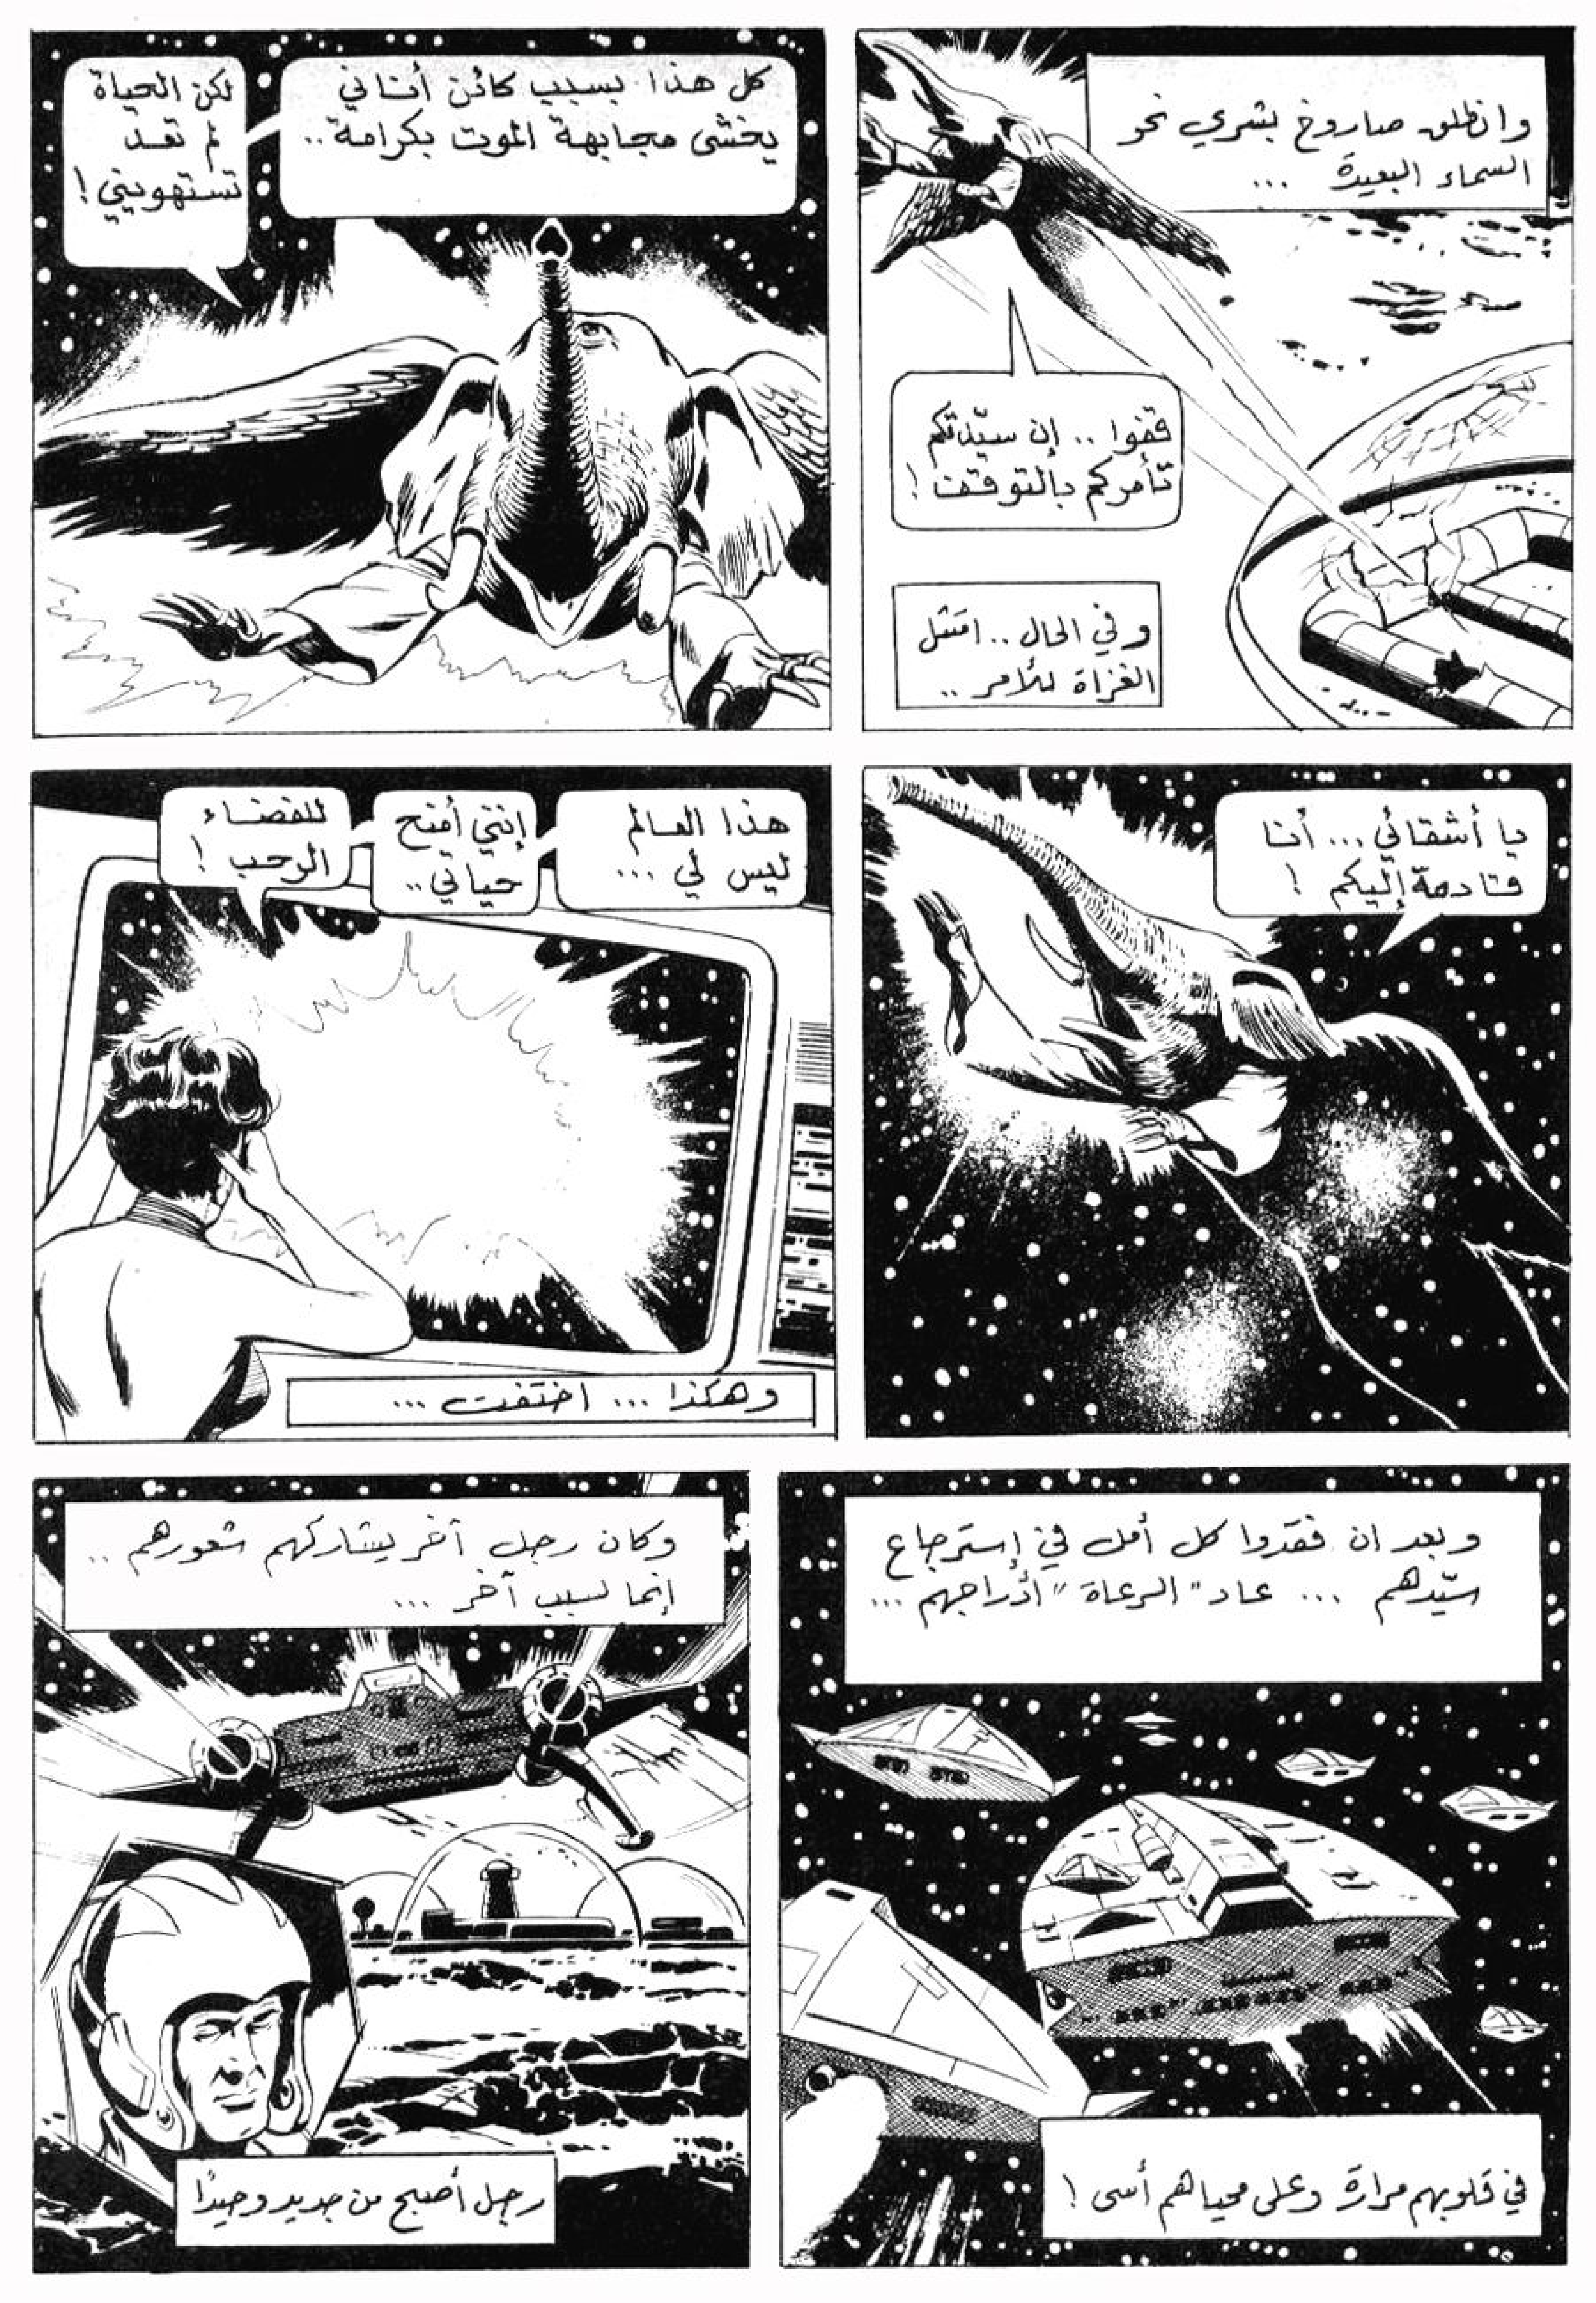 وانطلق صاروخ بشري نحو
السماء البعيدة ...
قفوا .. إن سيّدتكم
تأمركم بالتوقف !
وفي الحال .. امتثل
الغزاة للأمر ..
كل هذا بسبب كائن أناني
يخشى مجابهة الموت بكرامة ..
لكن الحياة
لم تعد
تستهويني !
يا أشقائي ... أنا
قادمة إليكم !
هذا العالم
ليس لي ...
إنني أمنح
حياتي ..
للفضاء
الرحب !
وهكذا ... اختفت ...
وبعد ان فقدوا كل أمل في إسترجاع
سيّدهم ... عاد "الرعاة" أدراجهم ...
في قلوبهم مرارة وعلى محياهم أسى !
وكان رجل آخر يشاركهم شعورهم ..
إنما لسبب آخر ...
رجل أصبح من جديد وحيدًا